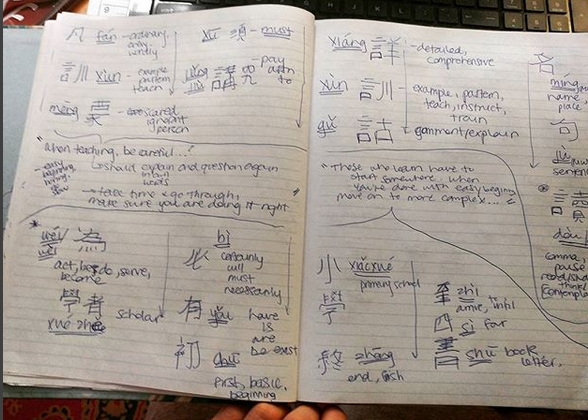 凡 fán - ordinary
any
訓 xùn - example
pattern
teach
méng 蒙 - 
ignorant
person
"when teaching, be careful...?
should explain and question again
take time & go through,
make sure you are doing it right
xū 須 - must
- pay
attn
to
* 為
act, be, do, serve,
become
學者 scholar
xué zhě
bì
必 certainly
will
must
necessarily
有 yǒu have
is
are
be exist
初 chū
first, basic,
beginning
xiáng 詳 - detailed,
comprehensive
xùn 訓 - example, pattern,
teach, instruct,
train
gǔ 詁 comment/explain
"Those who learn have to
start somewhere. When
you're done with easy beginning
move on to more complex..."
小 xiǎoxué
primary school
學
終 zhōng
end, finish
至 zhì
arrive, until
四 sì four
書 shū book
letter.
名
míng
name
place
句
jù
* 讀
dòu
comma,
pause
read
think
contemplate